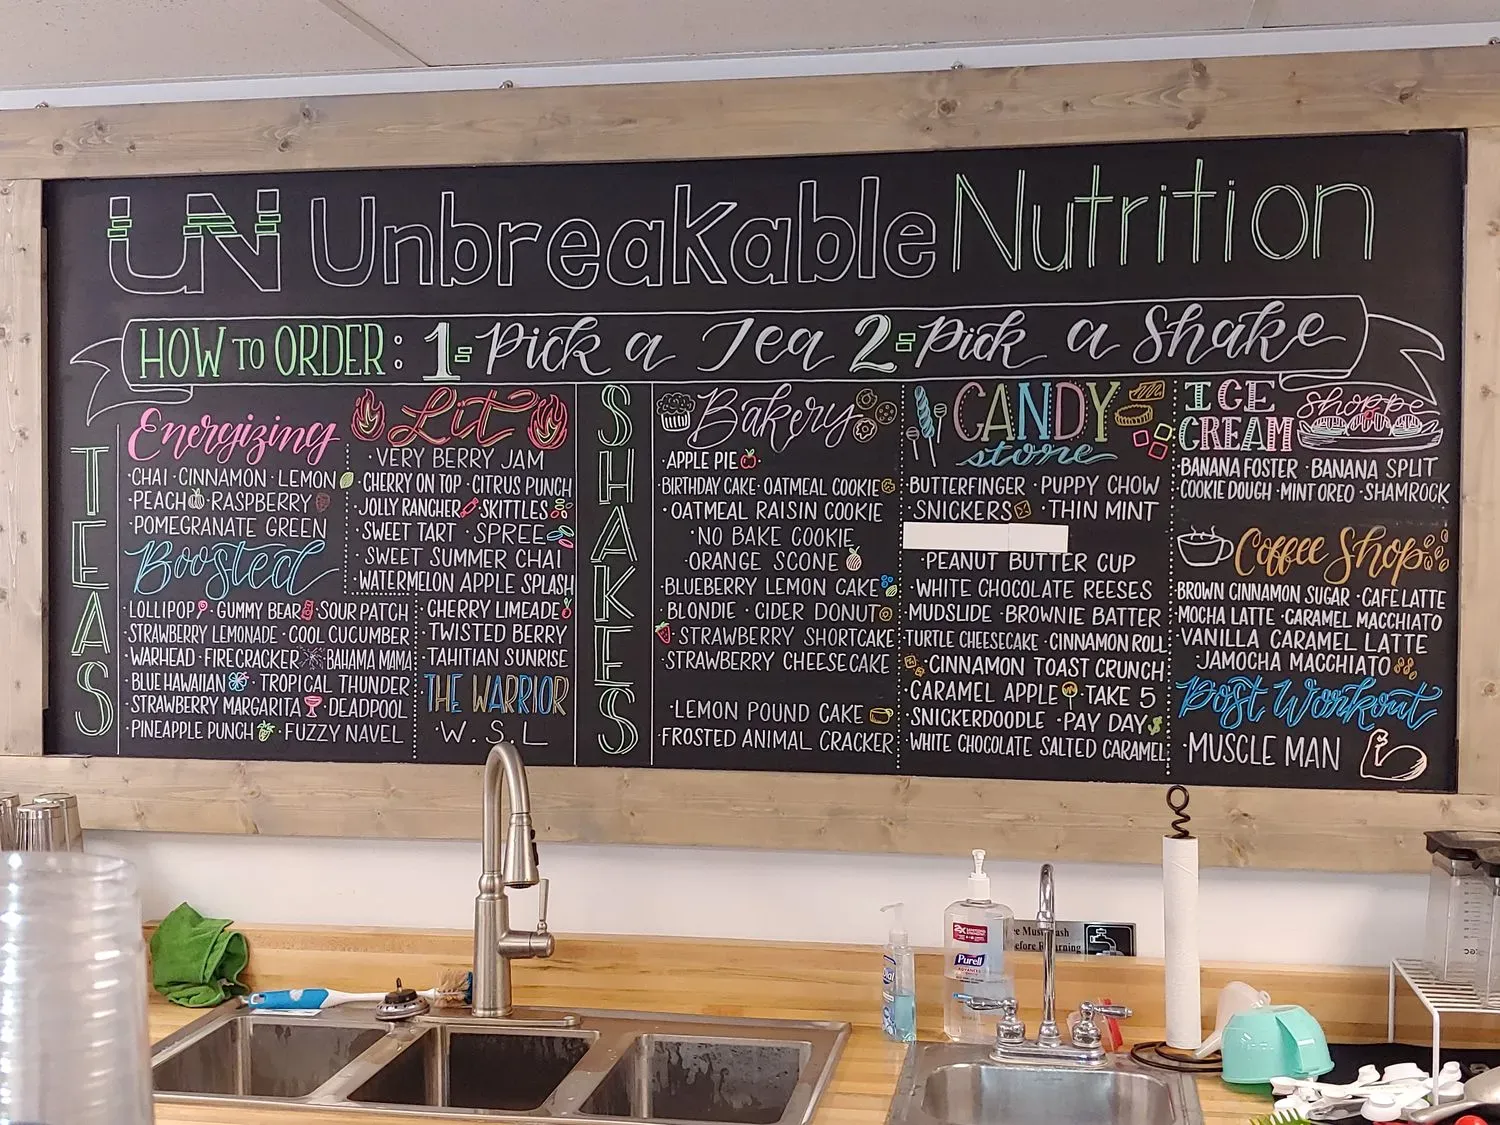 UN Unbreakable Nutrition
HOW TO ORDER: 1= Pick a Tea 2= Pick a Shake
TEAS
Energizing
·CHAI ·CINNAMON ·LEMON
·PEACH ·RASPBERRY
·POMEGRANATE GREEN
Lit
·VERY BERRY JAM
·CHERRY ON TOP ·CITRUS PUNCH
·JOLLY RANCHER ·SKITTLES
·SWEET TART ·SPREE
·SWEET SUMMER CHAI
·WATERMELON APPLE SPLASH
Boosted
·LOLLIPOP ·GUMMY BEAR ·SOUR PATCH
·STRAWBERRY LEMONADE ·COOL CUCUMBER
·WARHEAD ·FIRECRACKER ·BAHAMA MAMA
·BLUE HAWAIIAN ·TROPICAL THUNDER
·STRAWBERRY MARGARITA ·DEADPOOL
·PINEAPPLE PUNCH ·FUZZY NAVEL
·CHERRY LIMEADE
·TWISTED BERRY
·TAHITIAN SUNRISE
THE WARRIOR
·W.S.L
SHAKES
Bakery
·APPLE PIE·
·BIRTHDAY CAKE ·OATMEAL COOKIE
·OATMEAL RAISIN COOKIE
·NO BAKE COOKIE
·ORANGE SCONE
·BLUEBERRY LEMON CAKE
·BLONDIE ·CIDER DONUT
·STRAWBERRY SHORTCAKE
·STRAWBERRY CHEESECAKE
·LEMON POUND CAKE
·FROSTED ANIMAL CRACKER
CANDY
store
·BUTTERFINGER ·PUPPY CHOW
·SNICKERS ·THIN MINT
·PEANUT BUTTER CUP
·WHITE CHOCOLATE REESES
·MUDSLIDE ·BROWNIE BATTER
·TURTLE CHEESECAKE ·CINNAMON ROLL
·CINNAMON TOAST CRUNCH
·CARAMEL APPLE ·TAKE 5
·SNICKERDOODLE ·PAY DAY
·WHITE CHOCOLATE SALTED CARAMEL
ICE
CREAM shoppe
·BANANA FOSTER ·BANANA SPLIT
·COOKIE DOUGH ·MINT OREO ·SHAMROCK
Coffee Shop
·BROWN CINNAMON SUGAR ·CAFE LATTE
·MOCHA LATTE ·CARAMEL MACCHIATO
·VANILLA CARAMEL LATTE
·JAMOCHA MACCHIATO
Post Workout
·MUSCLE MAN
2X
Purell
ADVANCED
Dial